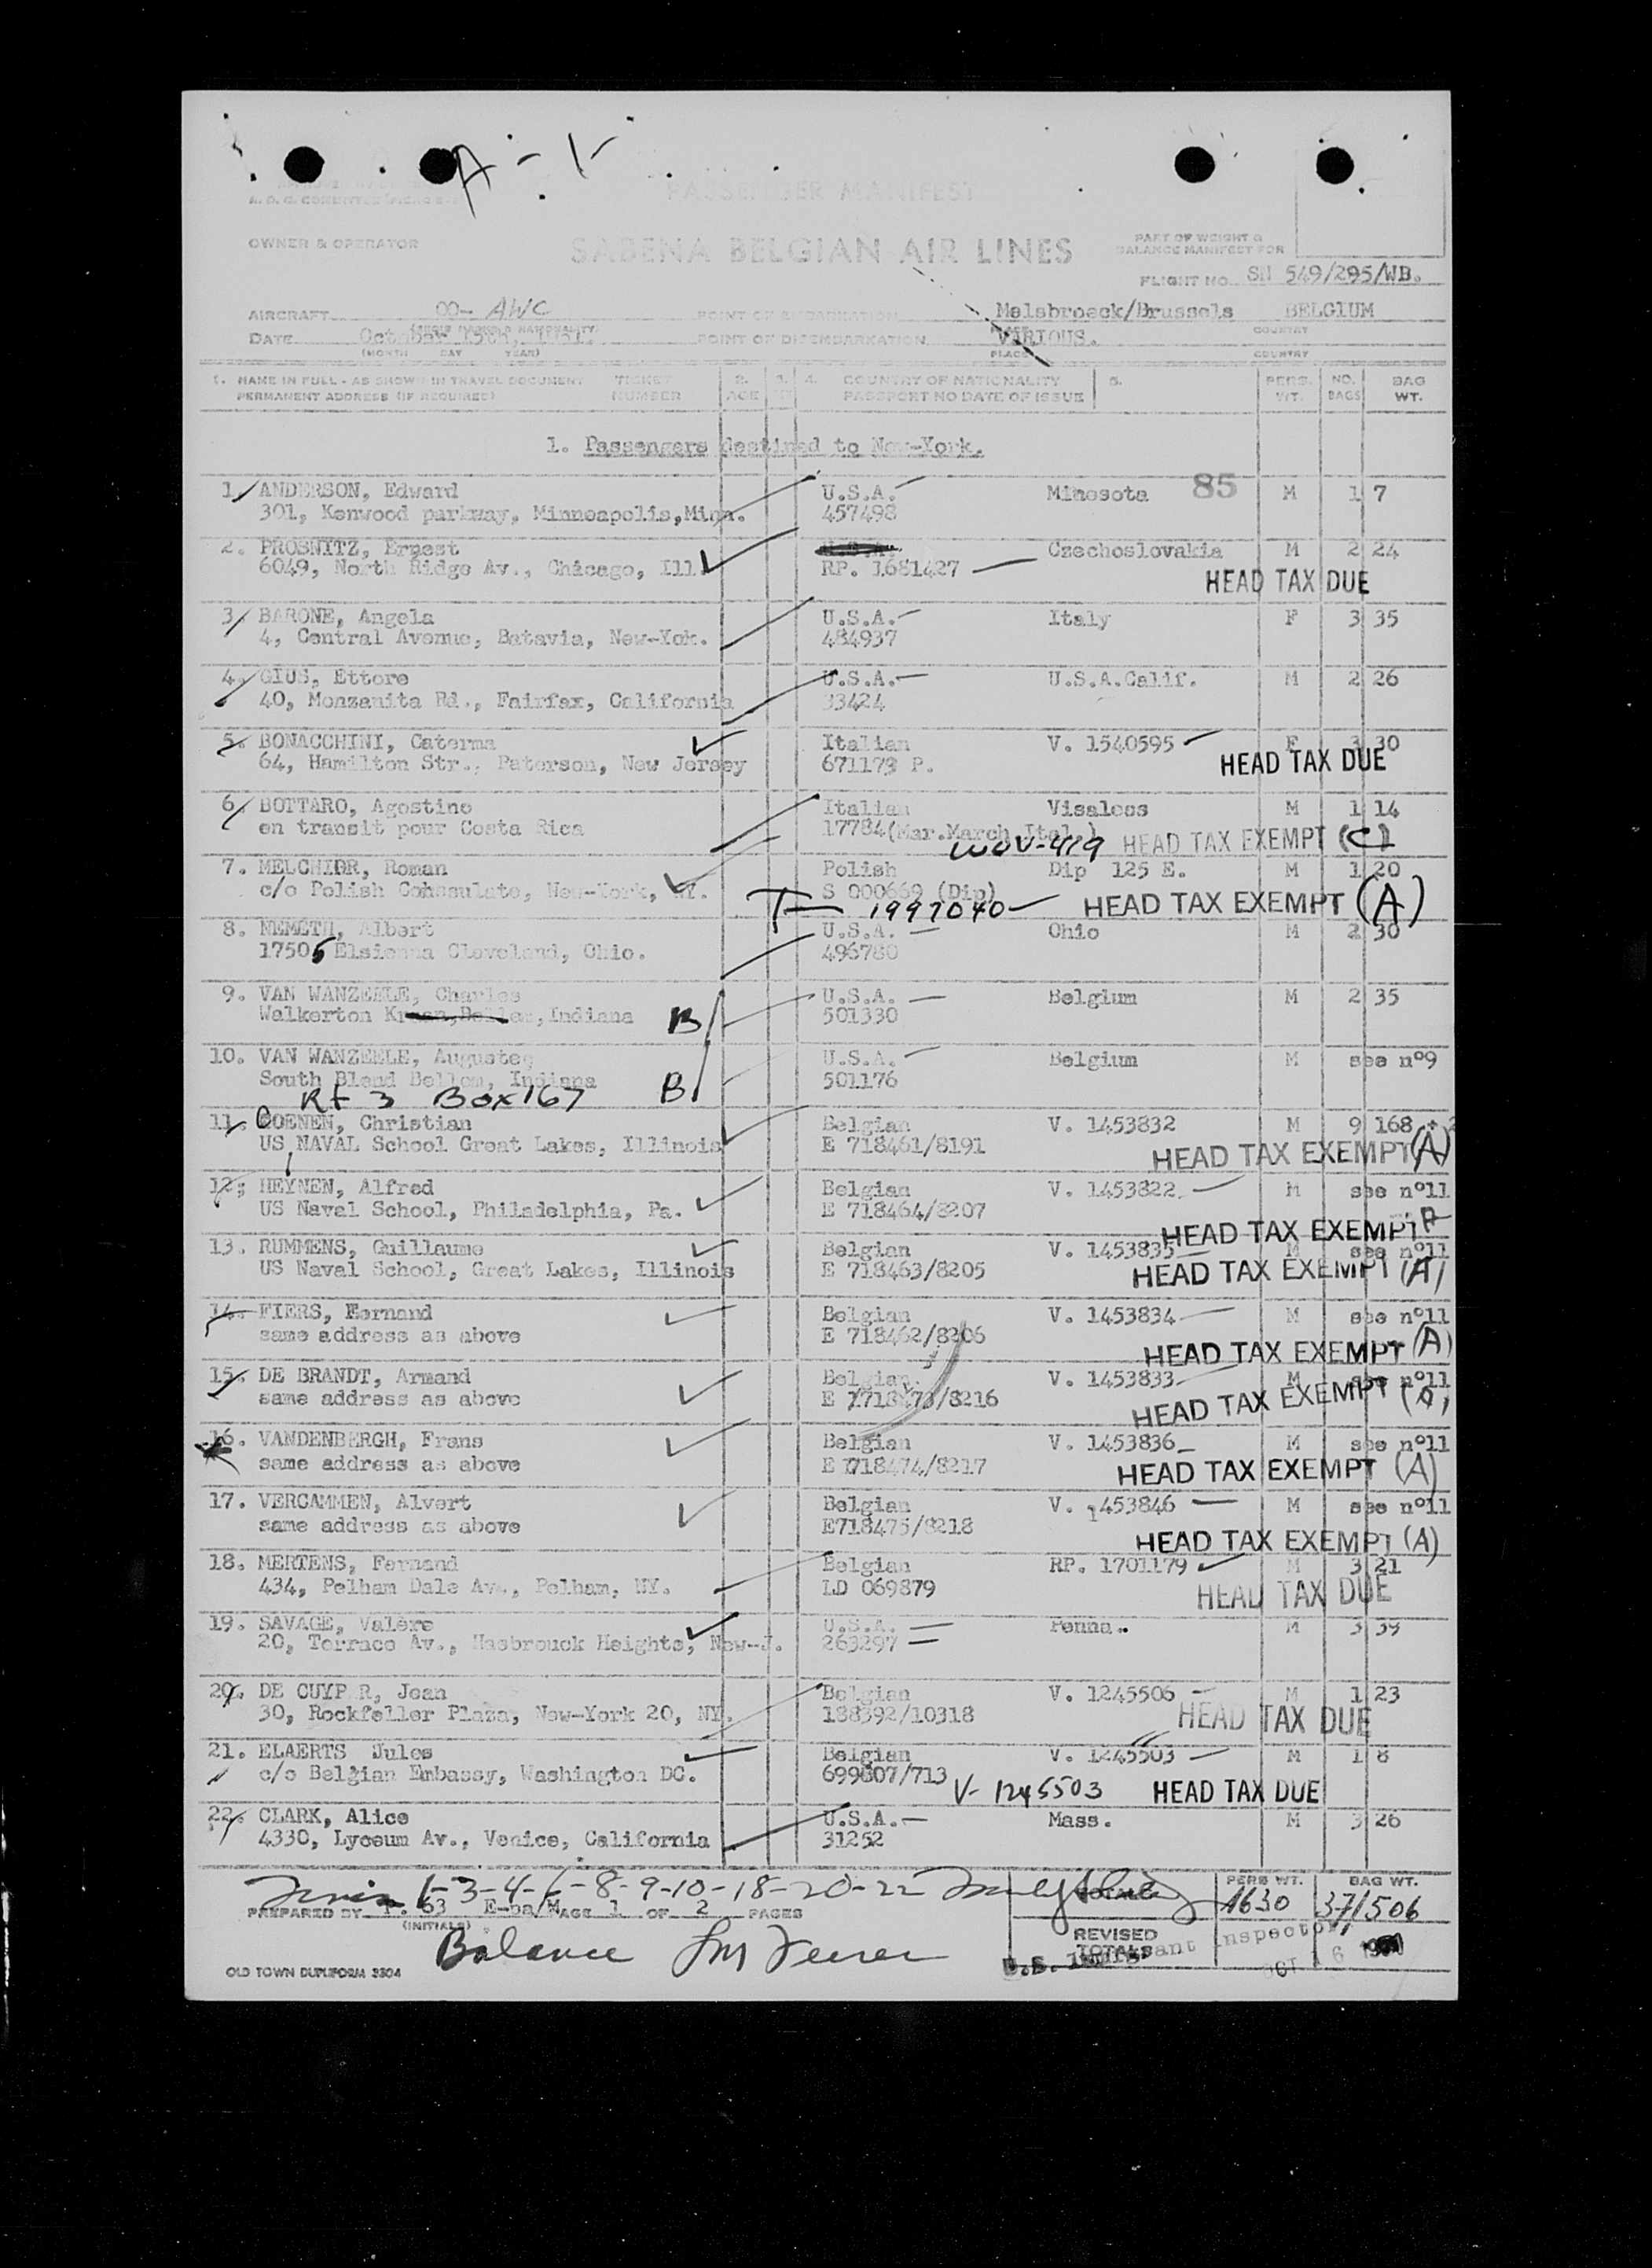 A-1-
PASSENGER MANIFEST
OWNER & OPERATOR
SABENA BELGIAN AIR LINES
PART OF WEIGHT &
BALANCE MANIFEST FOR
FLIGHT NO. SN 549/295/WB.
AIRCRAFT OO- AWC POINT OF EMBARKATION Melsbroeck/Brussels BELGIUM
DATE October 15th, 1951. POINT OF DISEMBARKATION VARIOUS.
(MONTH DAY YEAR) PLACE COUNTRY
1. NAME IN FULL - AS SHOWN IN TRAVEL DOCUMENT TICKET 2. 3. 4. COUNTRY OF NATIONALITY 5. PERS. NO. BAG
PERMANENT ADDRESS (IF REQUIRED) NUMBER AGE PASSPORT NO DATE OF ISSUE WT. BAGS WT.
1. Passengers destined to New-York.
1. ANDERSON, Edward U.S.A. Minesota 85 M 1 7
301, Kenwood parkway, Minneapolis, Minn. 457498
2. PROSNITZ, Ernest Czechoslovakia M 2 24
6049, North Ridge Av., Chicago, Ill. RP. 1681427 HEAD TAX DUE
3. BARONE, Angela U.S.A. Italy F 3 35
4, Central Avenue, Batavia, New-Yok. 484937
4. GIUS, Ettore U.S.A. U.S.A.Calif. M 2 26
40, Monzanita Rd., Fairfax, California 33424
5. BONACCHINI, Caterma Italian V. 1540595 F 3 30
64, Hamilton Str., Paterson, New Jersey 671173 P. HEAD TAX DUE
6. BOTTARO, Agostino Italian Visaless M 1 14
en transit pour Costa Rica 17784(Mar.March Ital.)
WOV-419 HEAD TAX EXEMPT (C)
7. MELCHIOR, Roman Polish Dip 125 E. M 1 20
c/o Polish Conssulate, New-York, NY. S 000669 (Dip)
T- 1997040 HEAD TAX EXEMPT (A)
8. NEMETH, Albert U.S.A. Ohio M 2 30
17505 Elsienna Cleveland, Ohio. 496780
9. VAN WANZEELE, Charles U.S.A. Belgium M 2 35
Walkerton Indiana B 501330
10. VAN WANZEELE, Auguste U.S.A. Belgium M see n°9
South Blend Indiana B 501176
Rt 3 Box 167
11. COENEN, Christian Belgian V. 1453832 M 9 168
US NAVAL School Great Lakes, Illinois E 718461/8191 HEAD TAX EXEMPT (A)
12. HEYNEN, Alfred Belgian V. 1453822 M see n°11
US Naval School, Philadelphia, Pa. E 718464/8207
HEAD TAX EXEMPT A
13. RUMMENS, Guillaume Belgian V. 1453835 M see n°11
US Naval School, Great Lakes, Illinois E 718463/8205 HEAD TAX EXEMPT (A)
14. FIERS, Fernand Belgian V. 1453834 M see n°11
same address as above E 718462/8206
HEAD TAX EXEMPT (A)
15. DE BRANDT, Armand Belgian V. 1453833 M see n°11
same address as above E 718473/8216 HEAD TAX EXEMPT
16. VANDENBERGH, Frans Belgian V. 1453836 M see n°11
same address as above E 718474/8217 HEAD TAX EXEMPT (A)
17. VERCAMMEN, Alvert Belgian V. 1453846 M see n°11
same address as above E718475/8218
HEAD TAX EXEMPT (A)
18. MERTENS, Fernand Belgian RP. 1701179 M 3 21
434, Pelham Dale Av., Pelham, NY. LD 069879 HEAD TAX DUE
19. SAVAGE, Valère U.S.A. Penna. M 3 39
20, Terrace Av., Hasbrouck Heights, New-J. 263297
20. DE CUYPER, Jean Belgian V. 1245506 M 1 23
30, Rockfeller Plaza, New-York 20, NY. 188392/10318 HEAD TAX DUE
21. ELAERTS Jules Belgian V. 1245503 M 1 8
c/o Belgian Embassy, Washington DC. 699807/713
V- 1245503 HEAD TAX DUE
22. CLARK, Alice U.S.A. Mass. M 3 26
4330, Lyceum Av., Venice, California 31252
1-3-4-6-8-9-10-18-20-22 TOTALS PERS WT. 1630 BAG WT. 37/506
PREPARED BY 63 PAGE 1 OF 2 PAGES
(INITIALS)
Balance REVISED TOTALS
U.S. Immigrant Inspector
OCT 16 1951
OLD TOWN DUPLIFORM 3504